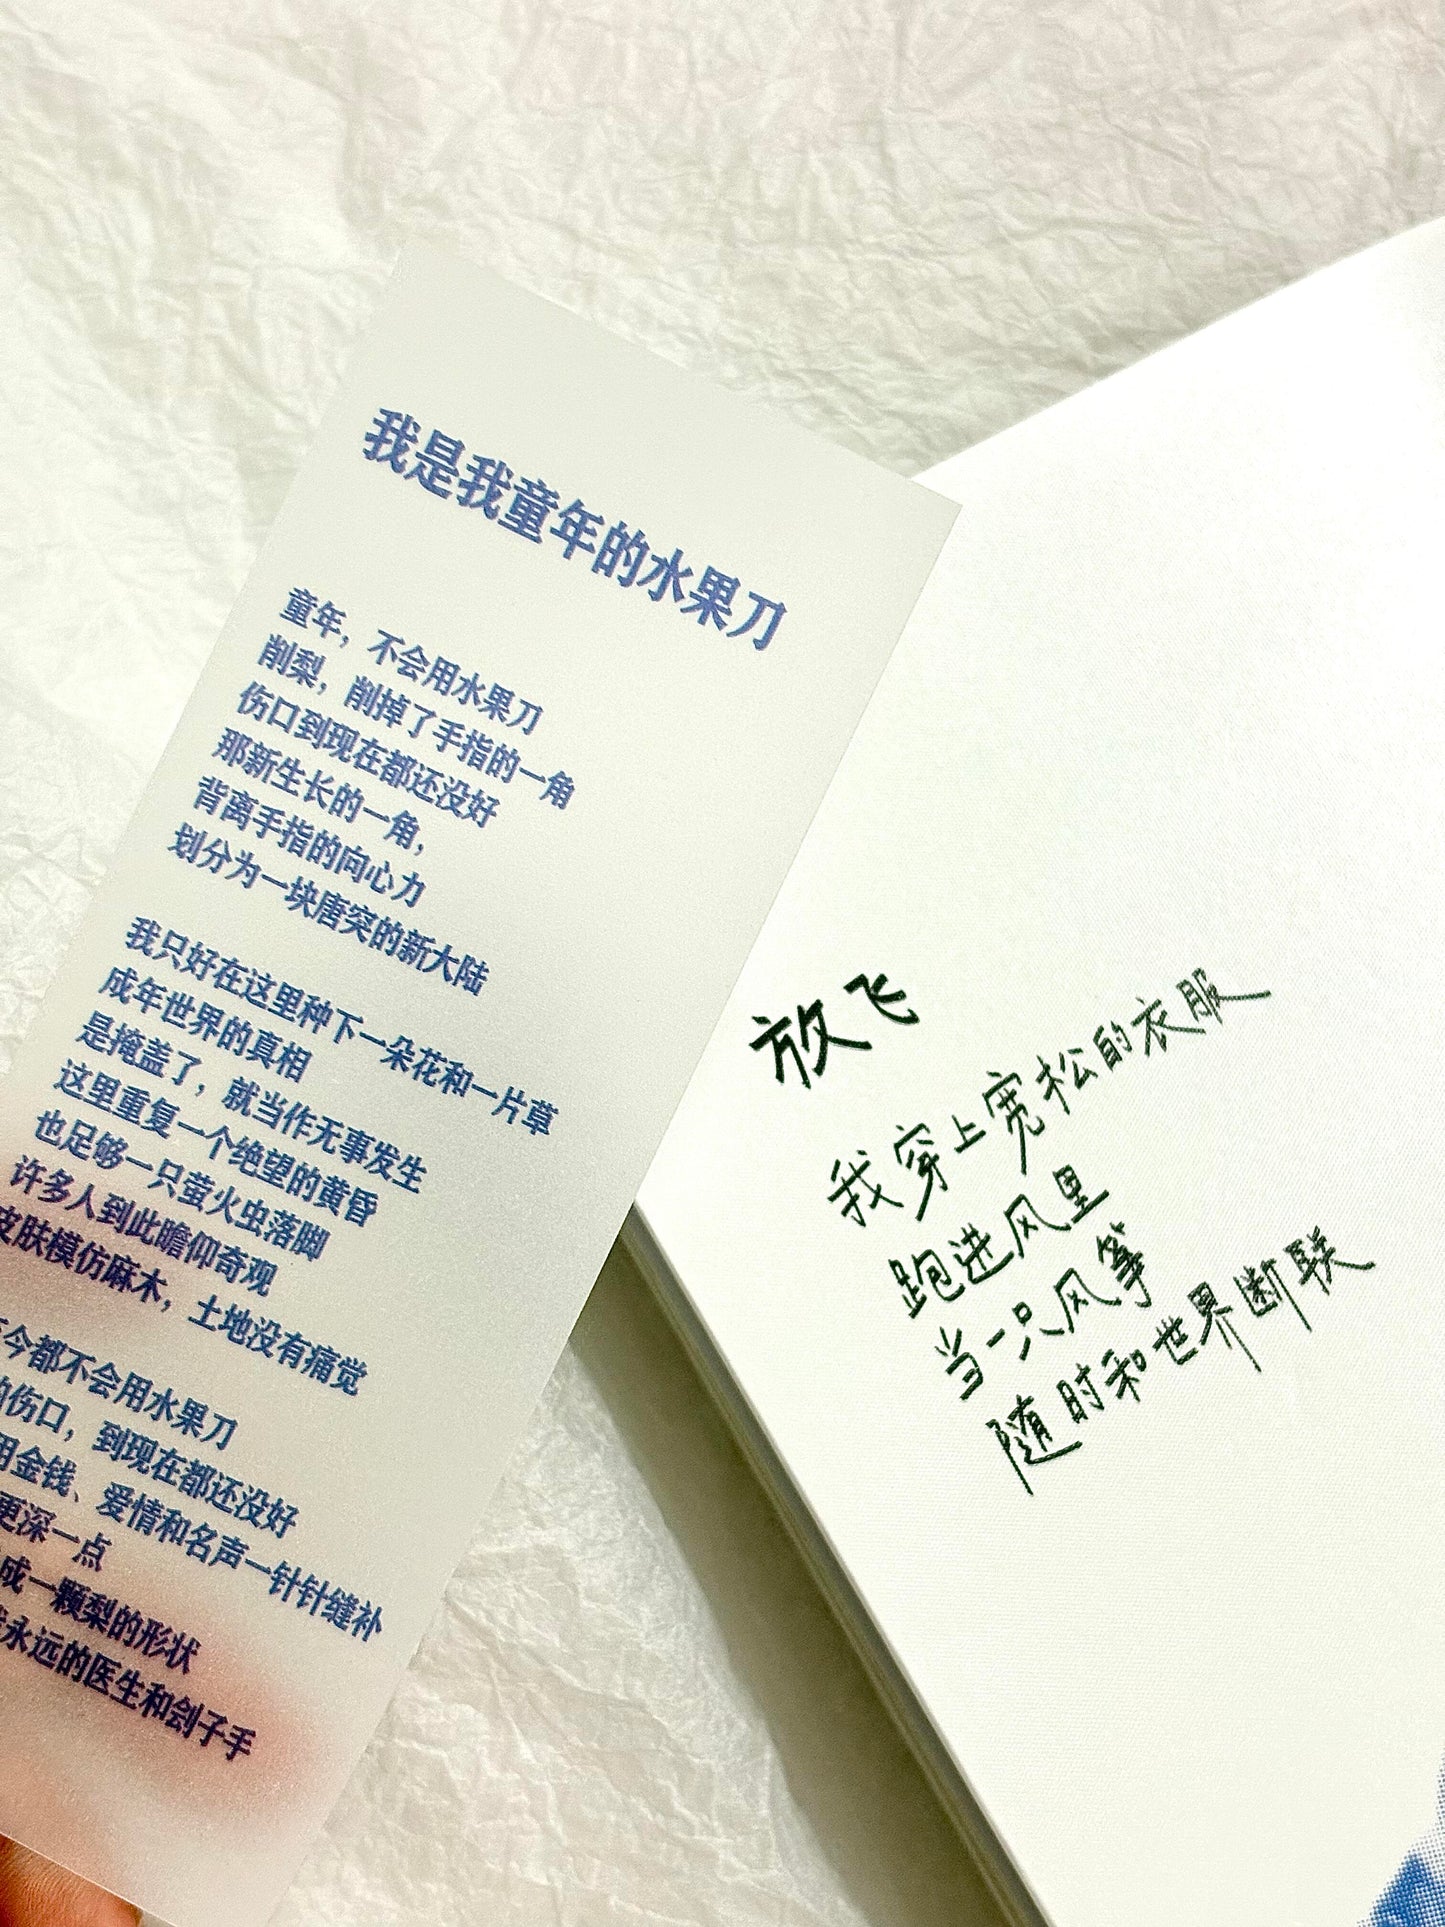 我是我童年的水果刀
童年，不会用水果刀
削梨，削掉了手指的一角
伤口到现在都还没好
那新生长的一角，
背离手指的向心力
划分为一块唐突的新大陆
我只好在这里种下一朵花和一片草
成年世界的真相
是掩盖了，就当作无事发生
这里重复一个绝望的黄昏
也足够一只萤火虫落脚
许多人到此瞻仰奇观
皮肤模仿麻木，土地没有痛觉
今都不会用水果刀
伤口，到现在都还没好
用金钱、爱情和名声一针针缝补
更深一点
成一颗梨的形状
永远的医生和刽子手
放飞
我穿上宽松的衣服
跑进风里
当一只风筝
随时和世界断联